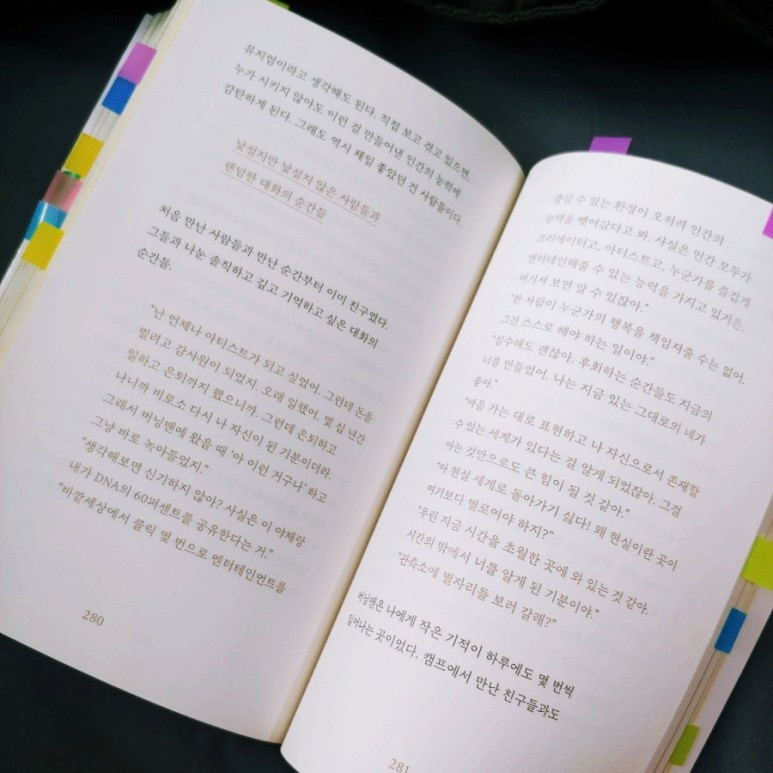 뮤지엄이라고 생각해도 된다. 직접 보고 겪고 있으면,
누가 시키지 않아도 이런 걸 만들어낸 인간의 능력에
감탄하게 된다. 그래도 역시 제일 좋았던 건 사람들이다.
낯설지만 낯설지 않은 사람들과
랜덤한 대화의 순간들
처음 만난 사람들과 만난 순간부터 이미 친구였다.
그들과 나눈 솔직하고 깊고 기억하고 싶은 대화의
순간들.
“난 언제나 아티스트가 되고 싶었어. 그런데 돈을
벌려고 감사원이 되었지. 오래 일했어. 몇 십 년간
일하고 은퇴까지 했으니까. 그런데 은퇴하고
나니까 비로소 다시 나 자신이 된 기분이더라.
그래서 버닝맨에 왔을 때 ‘아 이런 거구나’ 하고
그냥 바로 녹아들었지.”
“생각해보면 신기하지 않아? 사실은 이 야채랑
내가 DNA의 60퍼센트를 공유한다는 거.”
“바깥세상에서 클릭 몇 번으로 엔터테인먼트를
280
즐길 수 있는 환경이 오히려 인간의
능력을 뺏어갔다고 봐. 사실은 인간 모두가
크리에이터고, 아티스트고, 누군가를 즐겁게
엔터테인해줄 수 있는 능력을 가지고 있거든.
여기서 보면 알 수 있잖아.”
“한 사람이 누군가의 행복을 책임져줄 수는 없어.
그건 스스로 해야 하는 일이야.”
“실수해도 괜찮아. 후회하는 순간들도 지금의
너를 만들었어. 나는 지금 있는 그대로의 네가
좋아.”
“마음 가는 대로 표현하고 나 자신으로서 존재할
수 있는 세계가 있다는 걸 알게 되었잖아. 그걸
아는 것만으로도 큰 힘이 될 것 같아.”
“아 현실 세계로 돌아가기 싫다! 왜 현실이란 곳이
여기보다 별로여야 하지?”
“우린 지금 시간을 초월한 곳에 와 있는 것 같아.
시간의 밖에서 너를 알게 된 기분이야.”
“관측소에 별자리들 보러 갈래?”
버닝맨은 나에게 작은 기적이 하루에도 몇 번씩
일어나는 곳이었다. 캠프에서 만난 친구들과도
281